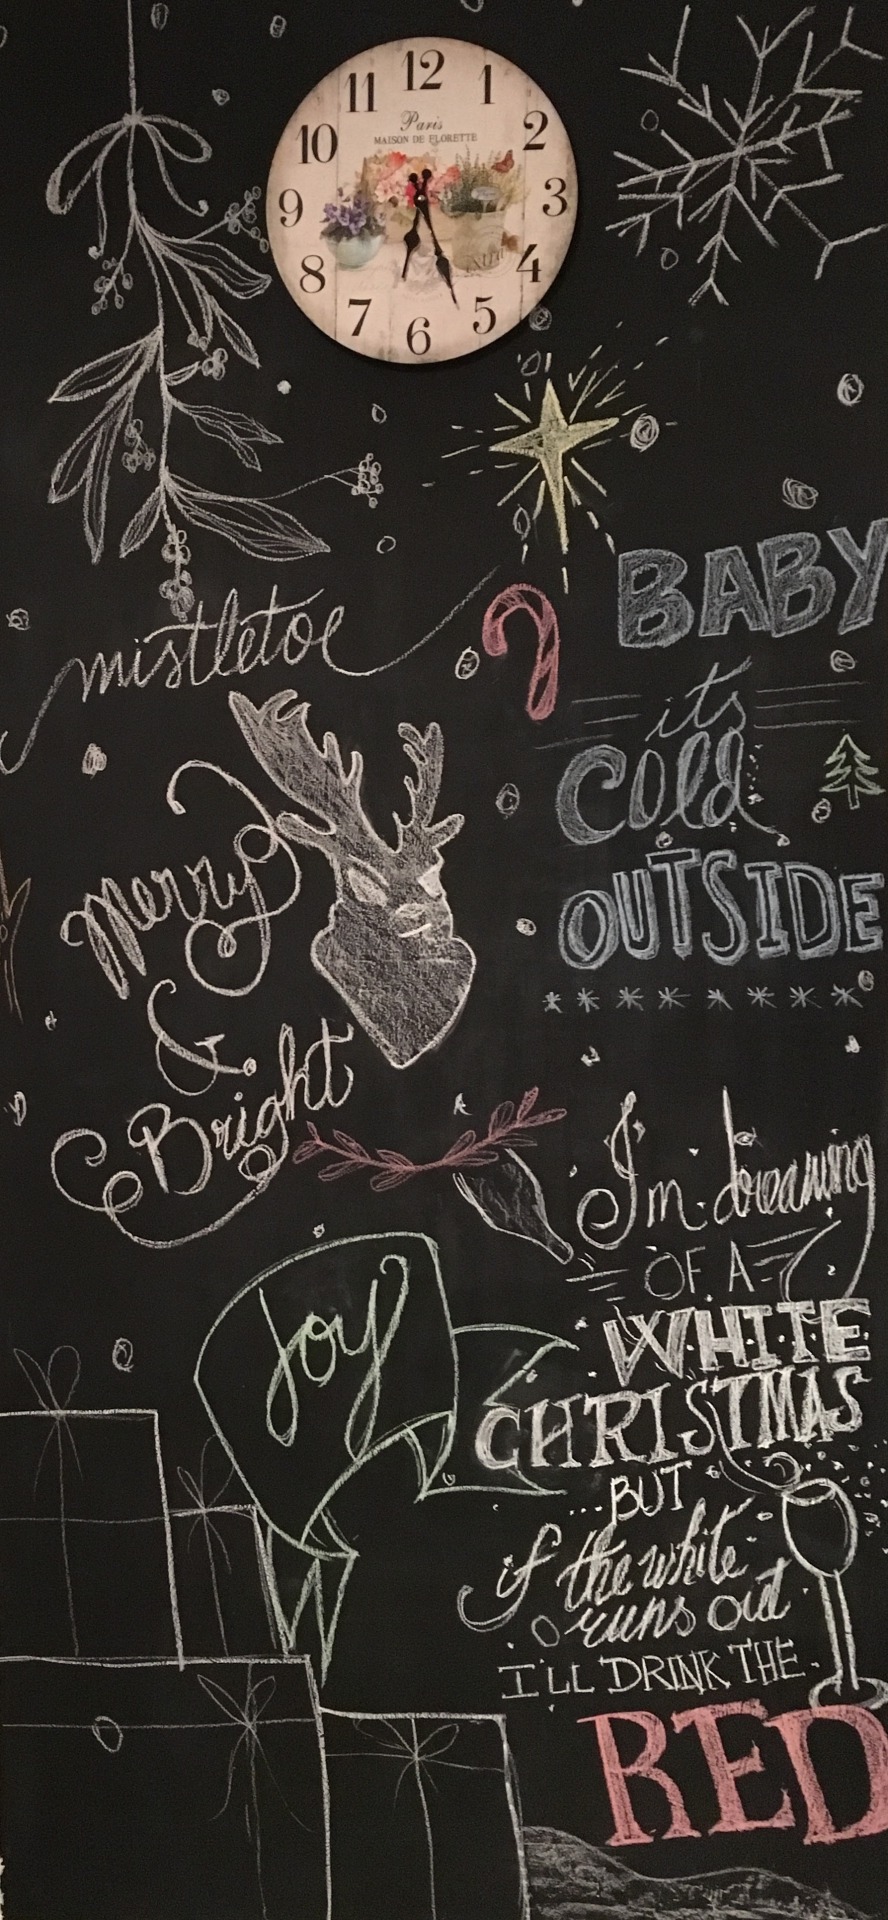 12
11
1
Paris
MAISON DE FLORETTE
10
2
9
3
8
4
7
5
6
mistletoe
BABY
its
Cold
OUTSIDE
Merry
&
Bright
I'm dreaming
OF A
WHITE
CHRISTMAS
...BUT
if the white
runs out
I'LL DRINK THE
RED
Joy